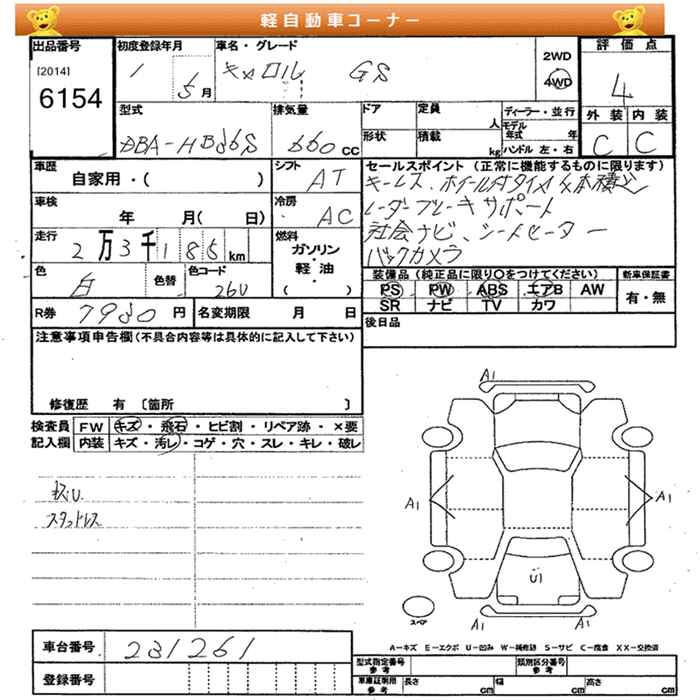 軽自動車コーナー
出品番号 初度登録年月 車名・グレード 2WD 評価点
[2014] 1 5月 キャロル GS 4WD 4
6154
型式 排気量 ドア 定員 人 ディーラー・並行 外装 内装
DBA-HB36S 660cc 形状 積載 kg モデル年式 年 ハンドル 左・右 C C
車歴 自家用・( ) シフト AT セールスポイント (正常に機能するものに限ります)
キーレス、ホイール付タイヤ4本積込
車検 年 月(日) 冷房 AC レーダーブレーキサポート
走行 2万3千185km 燃料 ガソリン・軽油・( ) 社会ナビ、シートヒーター
バックカメラ
色 白 色替 色コード 26U
装備品 (純正品に限り○をつけてください) 新車保証書
PS PW ABS エアB AW 有・無
SR ナビ TV カワ
R券 7980円 名変期限 月 日 後日品
注意事項申告欄 (不具合内容等は具体的に記入して下さい)
修復歴 有 〔箇所 〕
検査員記入欄 FW キズ・飛石・ヒビ割・リペア跡・×要
内装 キズ・汚レ・コゲ・穴・スレ・キレ・破レ
スタットレス
A1
A1 A1
U1
スペア A1 A1
A-キズ E-エクボ U-凹み W-補修跡 S-サビ C-腐食 XX-交換済
車台番号 231261
登録番号
型式指定番号 参考 類別区分番号 参考
車庫証明用 参考 長さ cm 幅 cm 高さ cm